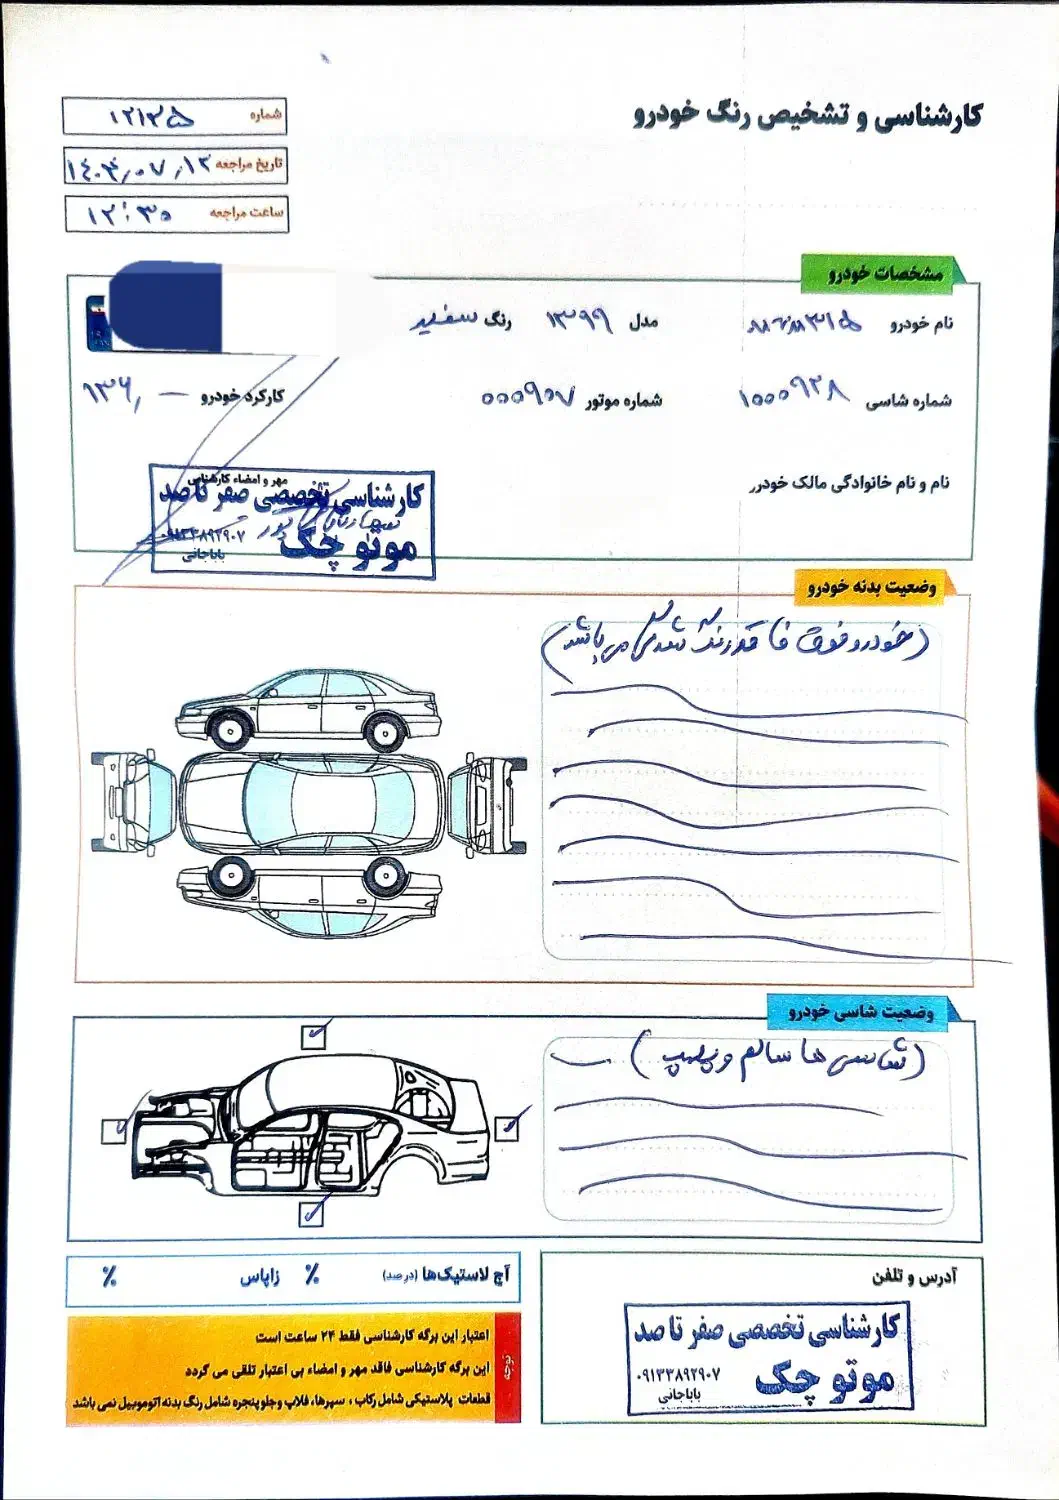 کارشناسی و تشخیص رنگ خودرو
شماره ۱۲۱۳۵
تاریخ مراجعه ۱۴۰۴٫۰۷٫۱۲
ساعت مراجعه ۱۲:۳۰
مشخصات خودرو
نام خودرو
مدل ۱۳۹۹ رنگ سفید
شماره شاسی ۱۰۰۰۹۲۸
شماره موتور ۰۰۰۹۰۷
کارکرد خودرو ۱۳۶٫
نام و نام خانوادگی مالک خودرو
مهر و امضاء کارشناس
کارشناسی تخصصی صفر تا صد
موتو چک
۰۹۱۳۳۸۹۲۹۰۷
باباجانی
وضعیت بدنه خودرو
(خودرو فوق فاقد رنگ شدگی می باشد)
وضعیت شاسی خودرو
(شاسی ها سالم و پلمپ)
آج لاستیک‌ها (درصد) ٪ زاپاس ٪
توجه
اعتبار این برگه کارشناسی فقط ۲۴ ساعت است
این برگه کارشناسی فاقد مهر و امضاء بی اعتبار تلقی می گردد
قطعات پلاستیکی شامل رکاب، سپرها، فلاپ و جلوپنجره شامل رنگ بدنه اتوموبیل نمی باشد
آدرس و تلفن
کارشناسی تخصصی صفر تا صد
موتو چک
۰۹۱۳۳۸۹۲۹۰۷
باباجانی